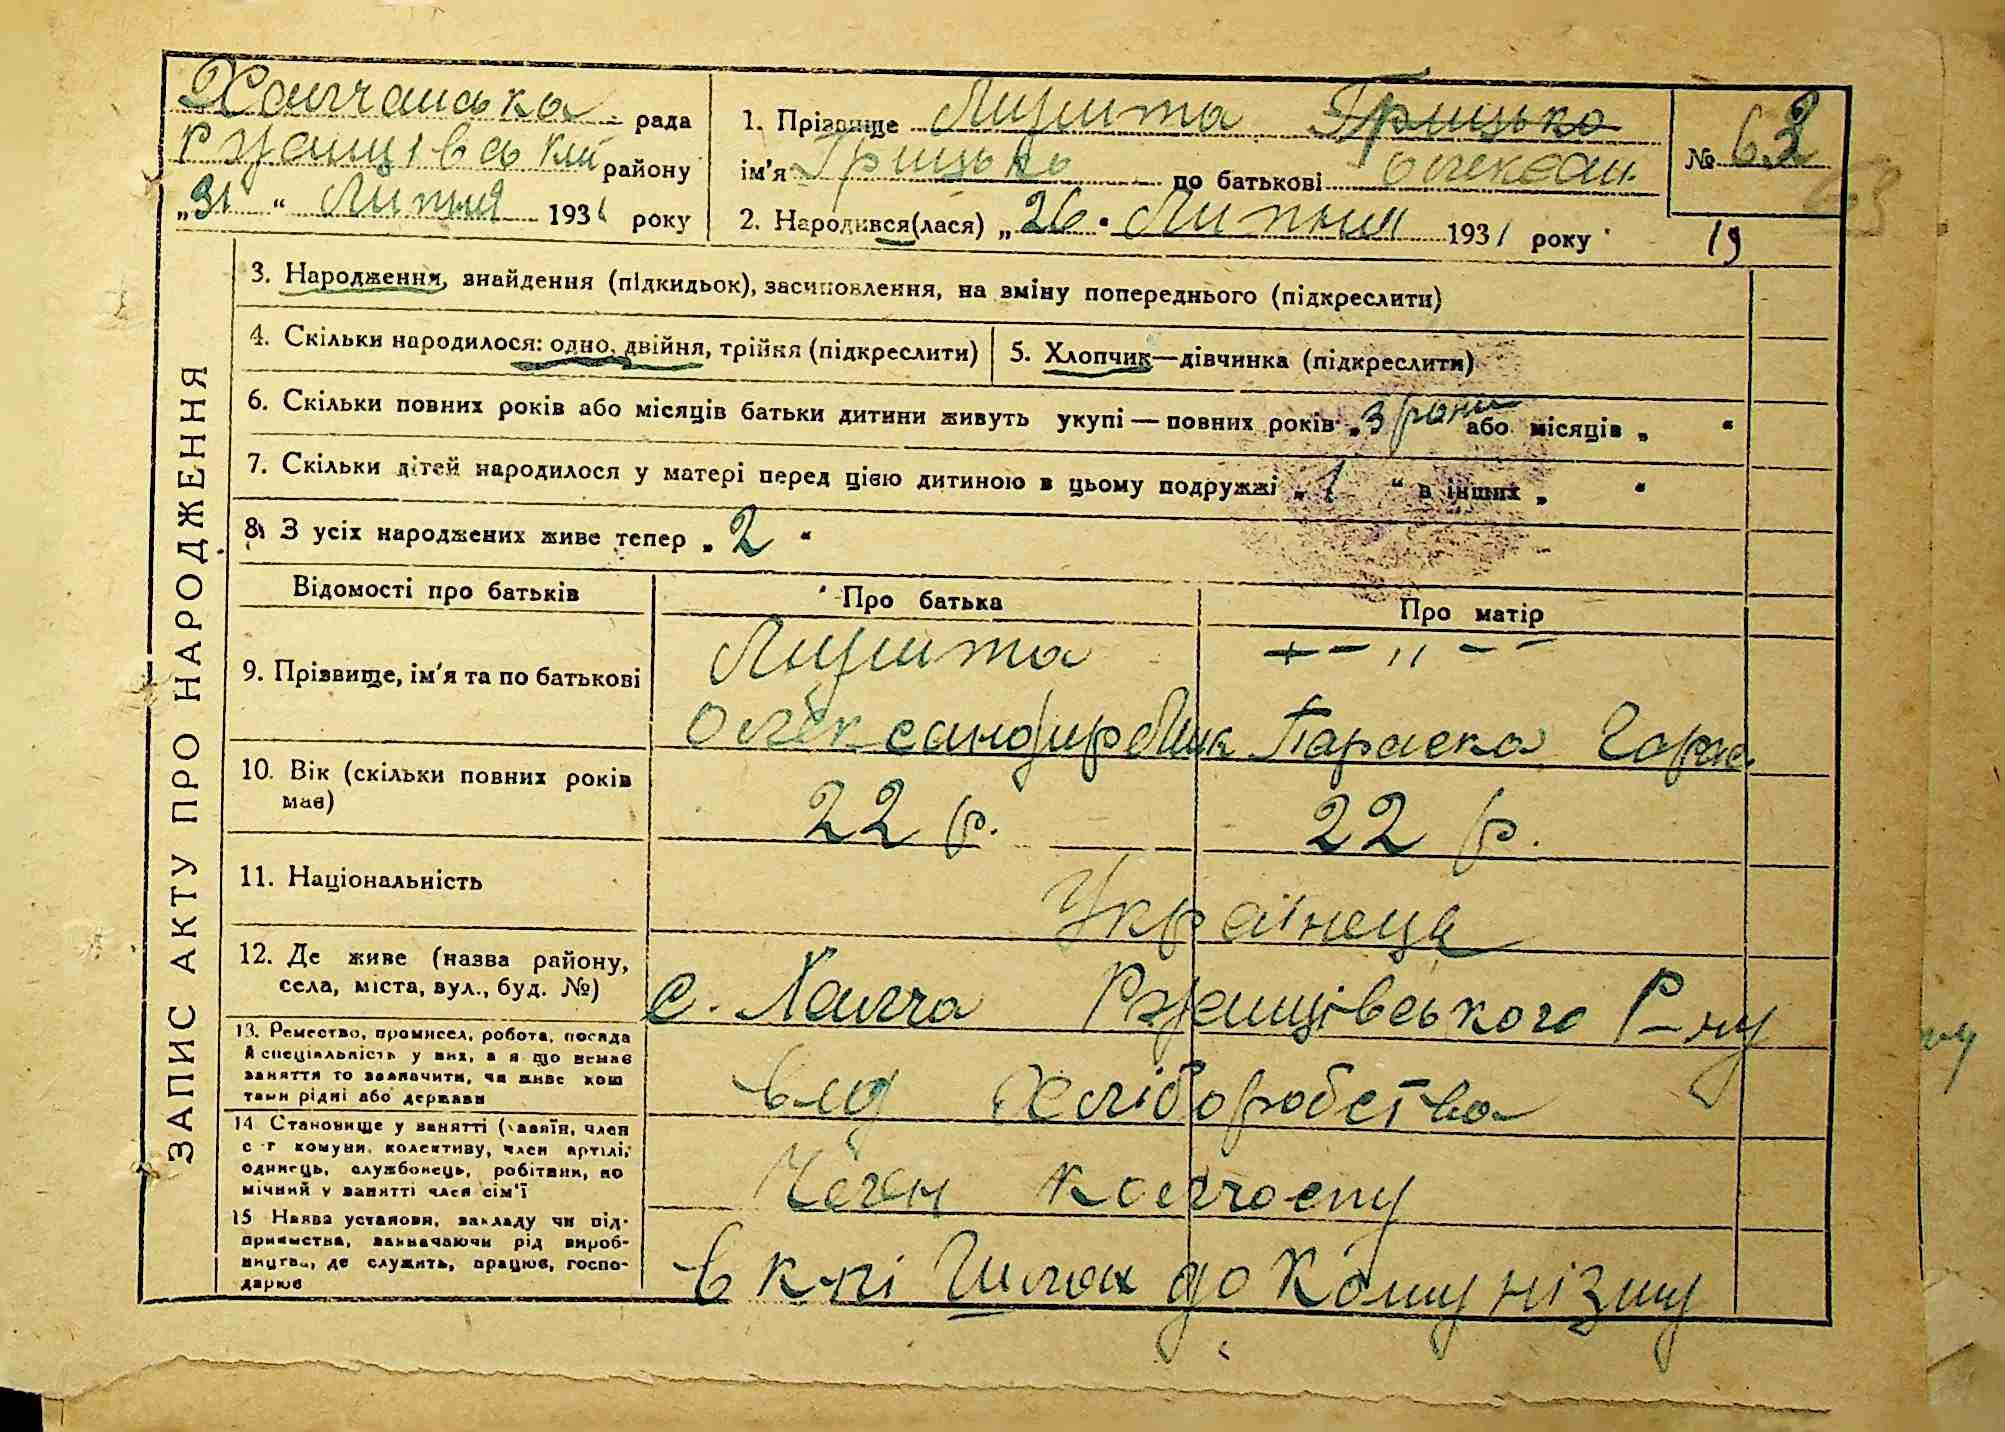 Халчанська рада
Ржищівський району
„31 “ Липня 1931 року
1. Прізвище Лишта Грицько
ім'я Грицько по батькові Олексан.
2. Народився(лася) „26 • Липня 1931 року
№ 63
63
19
ЗАПИС АКТУ ПРО НАРОДЖЕННЯ
3. Народження, знайдення (підкидьок), засиновлення, на зміну попереднього (підкреслити)
4. Скільки народилося: одно, двійня, трійня (підкреслити)
5. Хлопчик—дівчинка (підкреслити)
6. Скільки повних років або місяців батьки дитини живуть укупі — повних років „3 роки або місяців „ “
7. Скільки дітей народилося у матері перед цією дитиною в цьому подружжі „ 1 “ в інших „ “
8. З усіх народжених живе тепер „ 2 “
Відомості про батьків
Про батька
Про матір
9. Прізвище, ім'я та по батькові
Лишта
— — „ — —
Олександир
Параска
10. Вік (скільки повних років
має)
22 р.
22 р.
11. Національність
Українець
12. Де живе (назва району,
села, міста, вул., буд. №)
с. Халча Ржищівського Р-ну
13. Ремество, промисел, робота, посада
й спеціальність у них, а якщо немає
заняття то зазначити, чи живе кош
тами рідні або держави
від хліборобства
14 Становище у занятті (хазяїн, член
с-г комуни, колективу, член артілі,
одинець, службовець, робітник, по
мічний у занятті член сім'ї
Член колгоспу
15 Назва установи, закладу чи під-
приємства, зазначаючи рід вироб-
ництва, де служить, працює, госпо-
дарює
в к-гі Шлях до Комунізму